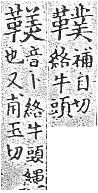 䪁
補目切
絡牛頭
䪁
音卜絡牛頭繩
也又甫玉切